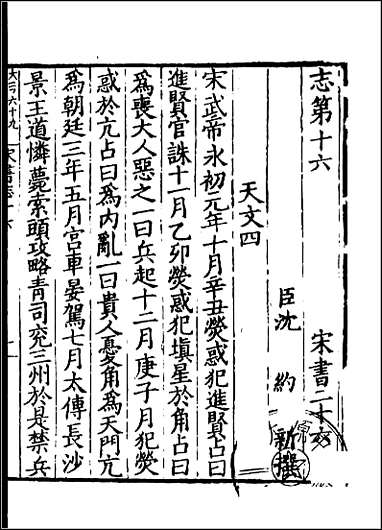 志第十六 宋書二十六
臣沈 約 新撰
天文四
宋武帝永初元年十月辛丑熒惑犯進賢占曰
進賢官誅十一月乙卯熒惑犯填星於角占曰
為喪大人惡之一曰兵起十二月庚子月犯熒
惑於亢占曰為內亂一曰貴人憂角為天門亢
為朝廷三年五月宮車晏駕七月太傅長沙
景王道憐薨索頭攻略青司兗三州於是禁兵